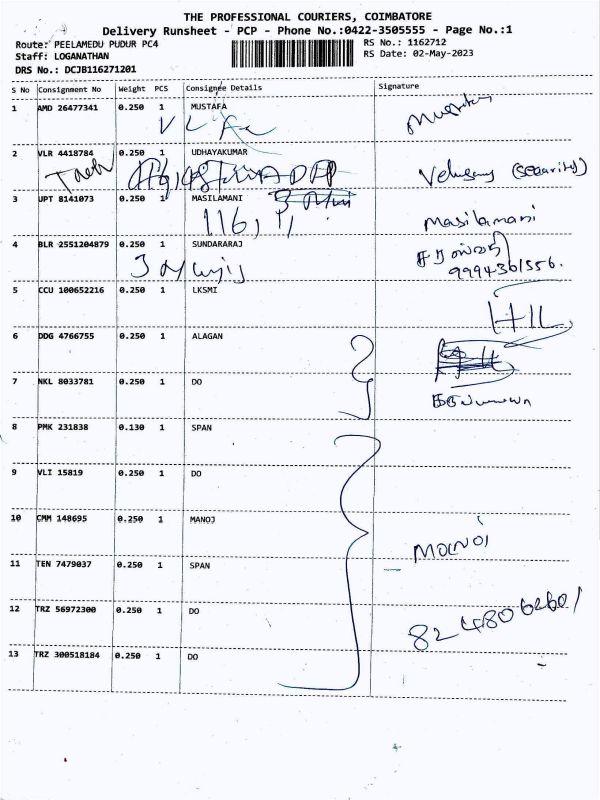 THE PROFESSIONAL COURIERS, COIMBATORE
Delivery Runsheet - PCP - Phone No.:0422-3505555 - Page No.:1
Route: PEELAMEDU PUDUR PC4 RS No.: 1162712
Staff: LOGANATHAN RS Date: 02-May-2023
DRS No.: DCJB116271201
S No Consignment No Weight PCS Consignee Details Signature
1 AMD 26477341 0.250 1 MUSTAFA
2 VLR 4418784 0.250 1 UDHAYAKUMAR
(security)
3 UPT 8141073 0.250 1 MASILAMANI
116, Masilamani
4 BLR 2551204879 0.250 1 SUNDARARAJ
9994361556.
5 CCU 100652216 0.250 1 LKSMI
6 DDG 4766755 0.250 1 ALAGAN
7 NKL 8033781 0.250 1 DO
8 PMK 231838 0.130 1 SPAN
9 VLI 15819 0.250 1 DO
10 CMM 148695 0.250 1 MANOJ
Manoj
11 TEN 7479037 0.250 1 SPAN
12 TRZ 56972300 0.250 1 DO
8248062601
13 TRZ 300518184 0.250 1 DO